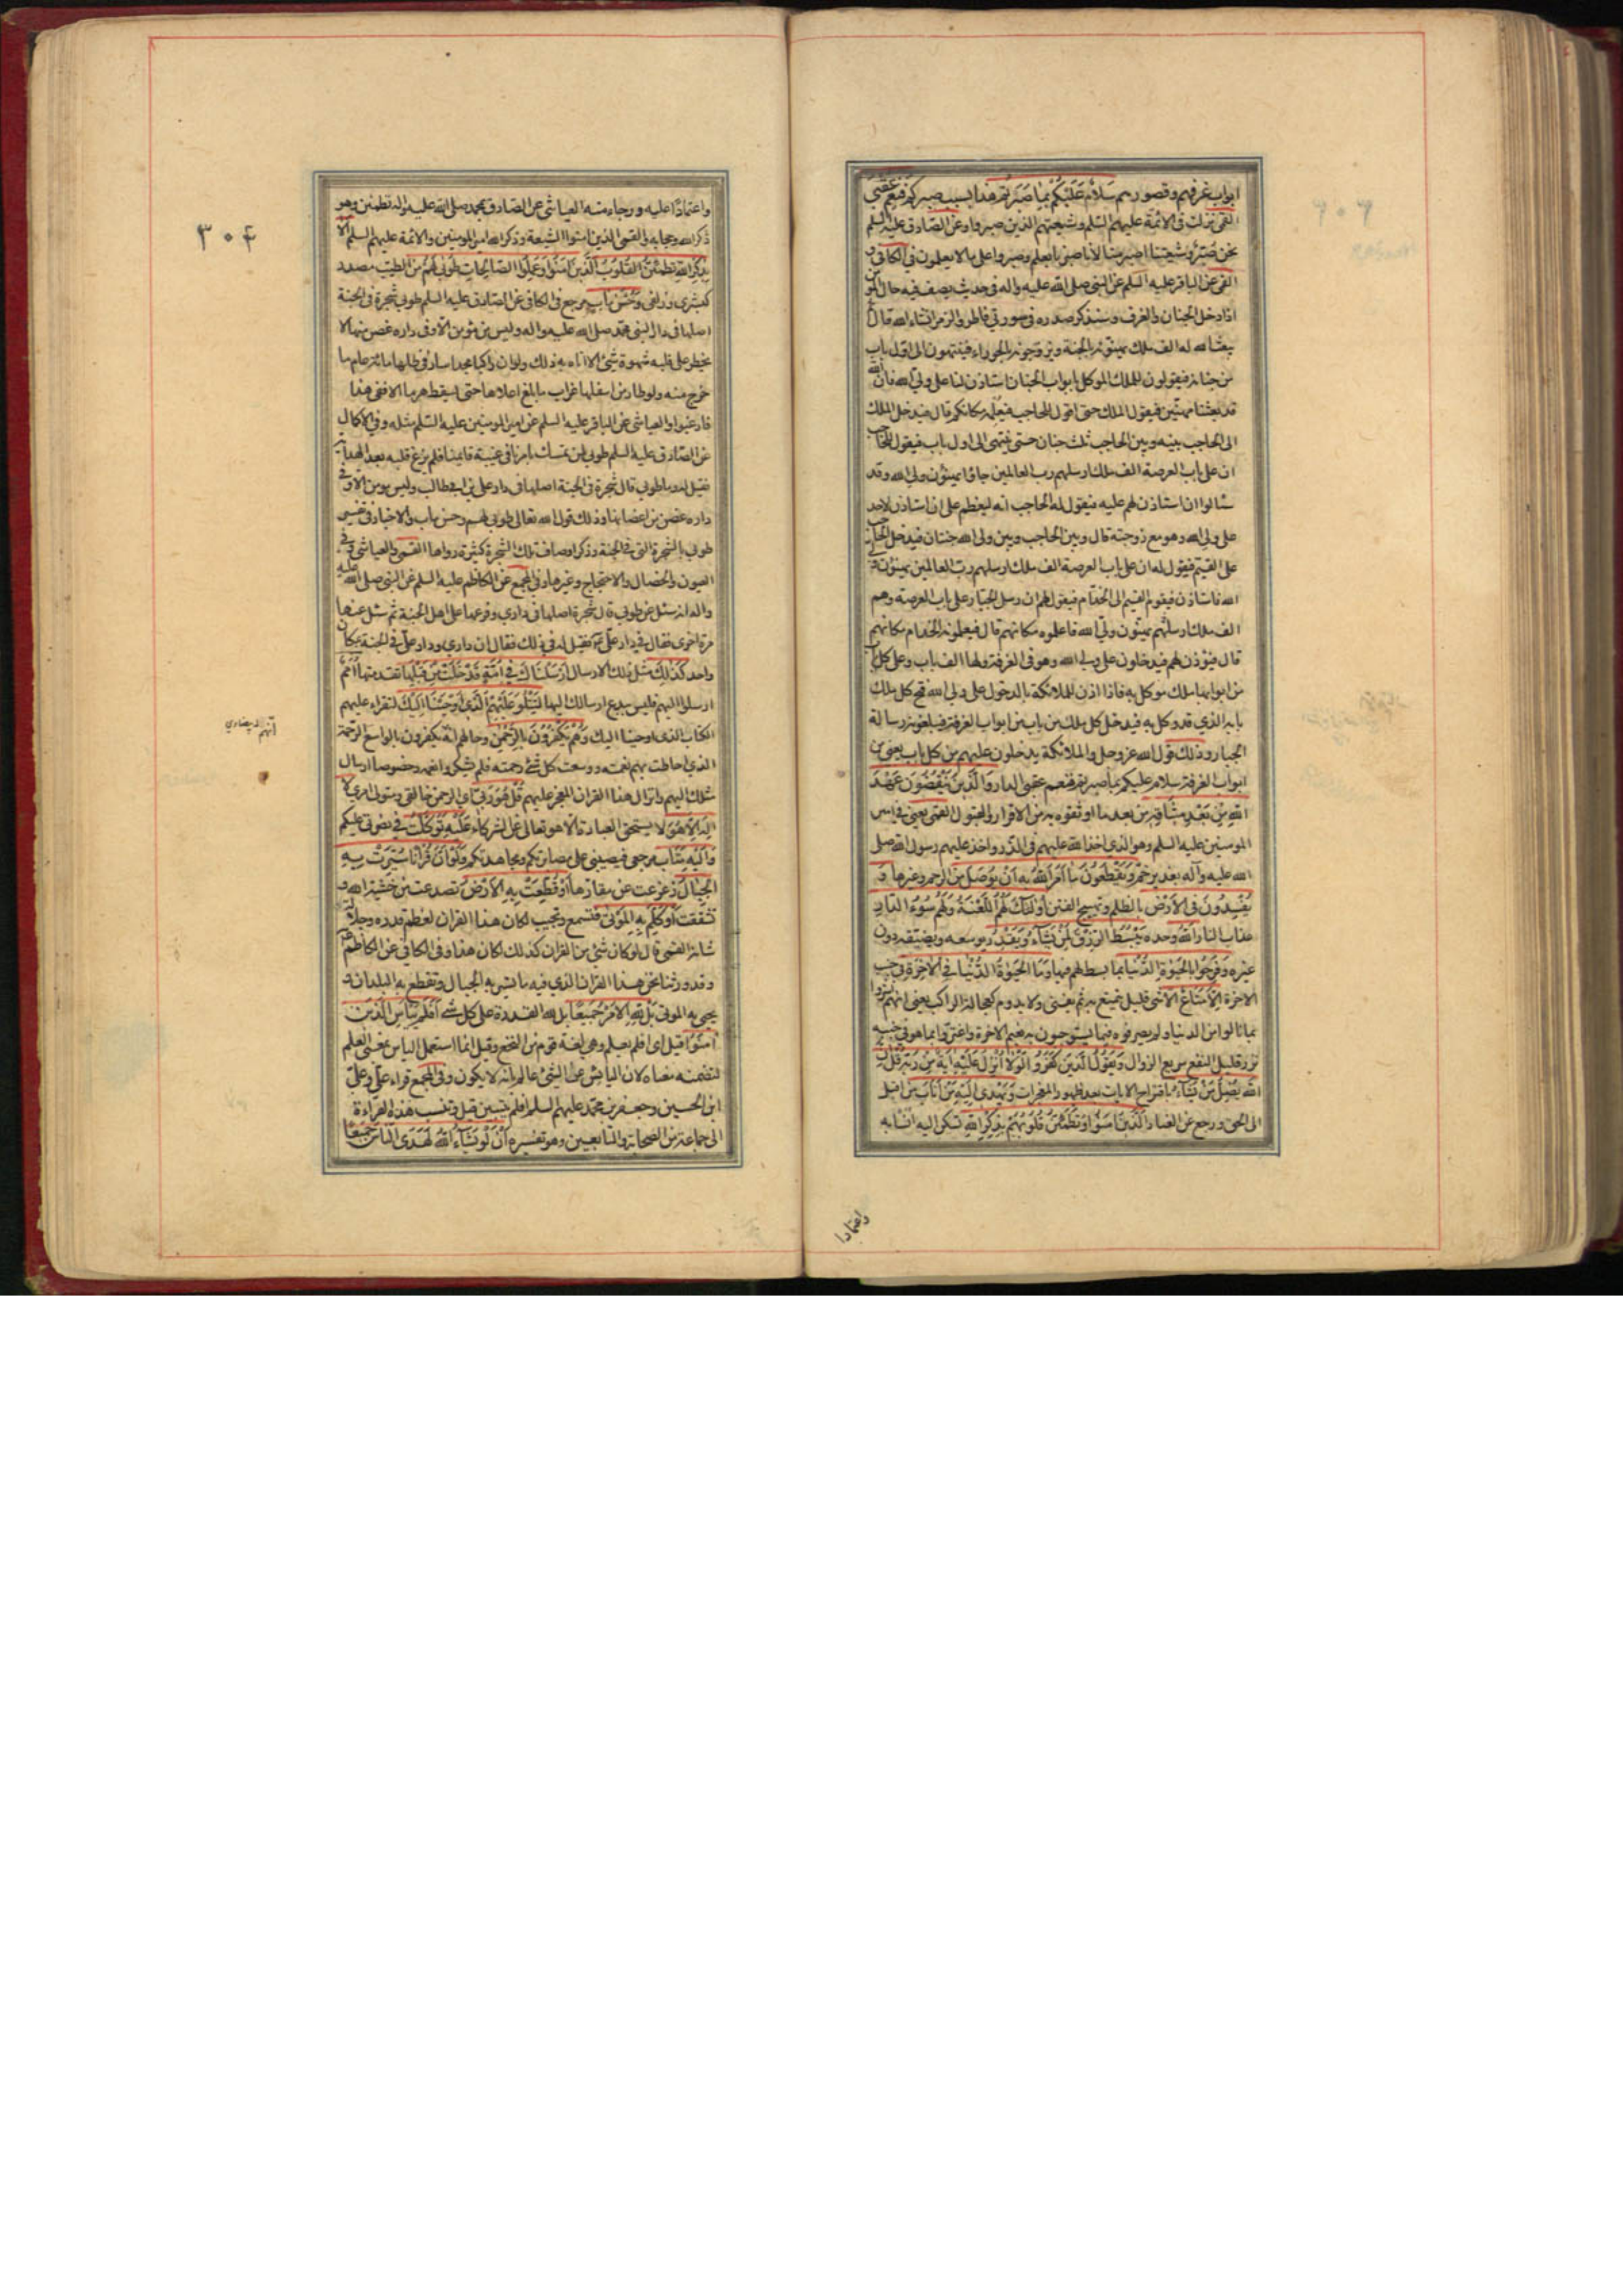 ابواب غرفهم وقصورهم سَلامٌ عَلَيْكُمْ بِما صَبَرْتُمْ هذا بسبب صبركم فَنِعْمَ عُقْبَى
القمى نزلت فى الائمة عليهم السلم وشيعتهم الذين صبروا وعن الصادق عليه السلم
نحن صُبَّر وشيعتنا اصبر منا لانا صبرنا بعلم وصبروا على ما لا يعلمون فى الكافى و
القمى عن الباقر عليه السلم عن النبى صلى الله عليه واله فى حديث يصف فيه حال المؤمن
اذا دخل الجنان والغرف وسنذكر صدره فى سورتى فاطر والزمر انشاء الله قال
يبعث الله له الف ملك يهنئونه بالجنة ويزوجونه بالحوراء فينتهون الى اول باب
من جنانه فيقولون للملك الموكل بابواب الجنان استاذن لنا على ولى الله فان الله
قد بعثنا مهنئين فيقول الملك حتى اقول للحاجب فيعلمه مكانكم قال فيدخل الملك
الى الحاجب بينه وبين الحاجب ثلث جنان حتى ينتهى الى اول باب فيقول للحاجب
ان على باب العرصة الف ملك ارسلهم رب العالمين جاؤا يهنئون ولى الله وقد
سئالوا ان استاذن لهم عليه فيقول له الحاجب انه ليعظم على ان استاذن لاحد
على ولى الله وهو مع زوجته قال وبين الحاجب وبين ولى الله جنتان فيدخل الحاجب
على القيم فيقول له ان على باب العرصة الف ملك ارسلهم رب العالمين يهنئون ولى
الله فاستاذن فيقوم القيم الى الخدام فيقول لهم ان رسل الجبار على باب العرصة وهم
الف ملك ارسلهم يهنئون ولى الله فاعلموه مكانهم قال فيعلمونه الخدام مكانهم
قال فيؤذن لهم فيدخلون على ولى الله وهو فى الغرفة ولها الف باب وعلى كل باب
من ابوابها ملك موكل به فاذا اذن للملائكة بالدخول على ولى الله فتح كل ملك
بابه الذى قد وكل به فيدخل كل ملك من باب من ابواب الغرفة فيبلغونه رسالة
الجبار وذلك قول الله عز وجل والملائكة يدخلون عليهم من كل باب يعنى من
ابواب الغرفة سلام عليكم بما صبرتم فنعم عقبى الدار وَالَّذينَ يَنْقُضُونَ عَهْدَ
اللهِ مِنْ بَعْدِ ميثاقِهِ من بعد ما اوثقوه به من الاقرار والقبول القمى يعنى فى امير
المومنين عليه السلم وهو الذى اخذ الله عليهم فى الذر واخذ عليهم رسول الله صلى
الله عليه وآله بغدير خم وَيَقْطَعُونَ ما اَمَرَ اللهُ بِه اَنْ يُوصَلَ من الرحم وغيرها وَ
يُفْسِدُونَ فِى الْاَرْضِ بالظلم وتهييج الفتن اُولئِكَ لَهُمُ اللَّعْنَةُ وَلَهُمْ سُوءُ الدّارِ
عذاب النار اَللهُ وحده يَبْسُطُ الرِّزْقَ لِمَنْ يَشاءُ وَيَقْدِرُ يوسعه ويضيقه دون
غيره وَفَرِحُوا بِالْحَيوةِ الدُّنْيا بما بسط لهم فيها وَمَا الْحَيوةُ الدُّنْيا فِى الْاخِرَةِ فى جنب
الاخرة اِلّا مَتاعٌ الا شئ قليل يتمتع به ثم يفنى ولا يدوم كعجالة الراكب يعنى انهم اشروا
بما نالوا من الدنيا ولم يصرفوه فيما يستوجبون به نعيم الاخرة واغتروا بما هو فى جنبه
نزر قليل النفع سريع الزوال وَيَقُولُ الَّذينَ كَفَرُوا لَوْلا اُنْزِلَ عَلَيْهِ ايَةٌ مِنْ رَبِّه قُلْ اِنَّ
اللهَ يُضِلُّ مَنْ يَشاءُ باقتراح الايات بعد ظهور المعجزات وَيَهْدى اِلَيْهِ مَنْ اَنابَ من اقبل
الى الحق ورجع عن العناد اَلَّذينَ امَنُوا وَتَطْمَئِنُّ قُلُوبُهُمْ بِذِكْرِ اللهِ تسكن اليه انسا به
واعتمادا
٣٠٤
واعتمادًا عليه ورجاء منه العياشى عن الصادق بمحمد صلى الله عليه واله تطمئن وهو
ذكر الله وحجابه والقمى الذين امنوا الشيعة وذكر الله امير المومنين والائمة عليهم السلم اَلا
بِذِكْرِ اللهِ تَطْمَئِنُّ الْقُلُوبُ اَلَّذينَ امَنُوا وَعَمِلُوا الصّالِحاتِ طُوبى لَهُمْ من الطيب مصدر
كبشرى وزلفى وَحُسْنُ مَابٍ مرجع فى الكافى عن الصادق عليه السلم طوبى شجرة فى الجنة
اصلها فى دار النبى محمد صلى الله عليه واله وليس من مؤمن الا وفى داره غصن منها لا
يخطر على قلبه شهوة شئ الا اتاه به ذلك ولو ان راكبا مجدا سار فى ظلها مائة عام ما
خرج منه ولو طار من اسفلها غراب ما بلغ اعلاها حتى يسقط هرما الا ففى هذا
فارغبوا والعياشى عن الباقر عليه السلم عن امير المومنين عليه السلم مثله وفى الاكمال
عن الصادق عليه السلم طوبى لمن تمسك بامرنا فى غيبة قايمنا فلم يزغ قلبه بعد الهداية
فقيل له وما طوبى قال شجرة فى الجنة اصلها فى دار على بن ابى طالب وليس مومن الا وفى
داره غصن من اغصانها وذلك قول الله تعالى طوبى لهم وحسن ماب والاخبار فى تفسير
طوبى بالشجرة التى فى الجنة وذكر اوصاف تلك الشجرة كثيرة رواها القمى والعياشى وفى
العيون والخصال والاحتجاج وغيرها وفى المجمع عن الكاظم عليه السلم عن النبى صلى الله عليه
واله انه سئل عن طوبى قال شجرة اصلها فى دارى وفرعها على اهل الجنة ثم سئل عنها
مرة اخرى فقال فى دار على فقيل له فى ذلك فقال ان دارى ودار على فى الجنة بمكان
واحد كَذلِكَ مثل ذلك الارسال اَرْسَلْناكَ فى اُمَّةٍ قَدْ خَلَتْ مِنْ قَبْلِها تقدمتها اُمَمٌ
ارسلوا اليهم فليس ببدع ارسالك اليها لِتَتْلُوَ عَلَيْهِمُ الَّذى اَوْحَيْنا اِلَيْكَ لتقراء عليهم
الكتاب الذى اوحينا اليك وَهُمْ يَكْفُرُونَ بِالرَّحْمنِ وحالهم انه يكفرون بالواسع الرحمة
انهم بيضاوى
الذى احاطت بهم نعمته ووسعت كل شئ رحمته فلم يشكروا نعمه وخصوصا ارسال
مثلك اليهم وانزال هذا القران المعجز عليهم قُلْ هُوَ رَبّى اى الرحمن خالقى ومتولى امرى لا
اِلهَ اِلّا هُوَ لا يستحق العبادة الا هو تعالى عن الشركاء عَلَيْهِ تَوَكَّلْتُ فى نصرتى عليكم
وَاِلَيْهِ مَتابِ مرجعى فيصيبنى على مصابرتكم ومجاهدتكم وَلَوْ اَنَّ قُرْانًا سُيِّرَتْ بِهِ
الْجِبالُ زعزعت عن مقارها اَوْ قُطِّعَتْ بِهِ الْاَرْضُ تصدعت من خشية الله و
تشققت اَوْ كُلِّمَ بِهِ الْمَوْتى فتسمع وتجيب لكان هذا القران لعظم قدره وجلالة
شانه القمى قال لو كان شئ من القران كذلك لكان هذا وفى الكافى عن الكاظم
وقد ورثنا نحن هذا القران الذى فيه ما تسير به الجبال وتقطع به البلدان و
يحيى به الموتى بَلْ لِلّهِ الْاَمْرُ جَميعًا بل لله القدرة على كل شئ اَفَلَمْ يَيْاَسِ الَّذينَ
امَنُوا قيل اى افلم يعلم وهى لغة قوم من النخع وقيل انما استعمل الياس بمعنى العلم
لتضمنه معناه لان اليائس عن الشئ عالم بانه لا يكون وفى المجمع قراء على وعلى
ابن الحسين وجعفر بن محمد عليهم السلم افلم يتبين قيل وتنسب هذه القراءة
الى جماعة من الصحابة والتابعين وهو تفسيره اَنْ لَوْ يَشاءُ اللهُ لَهَدَى النّاسَ جَميعًا